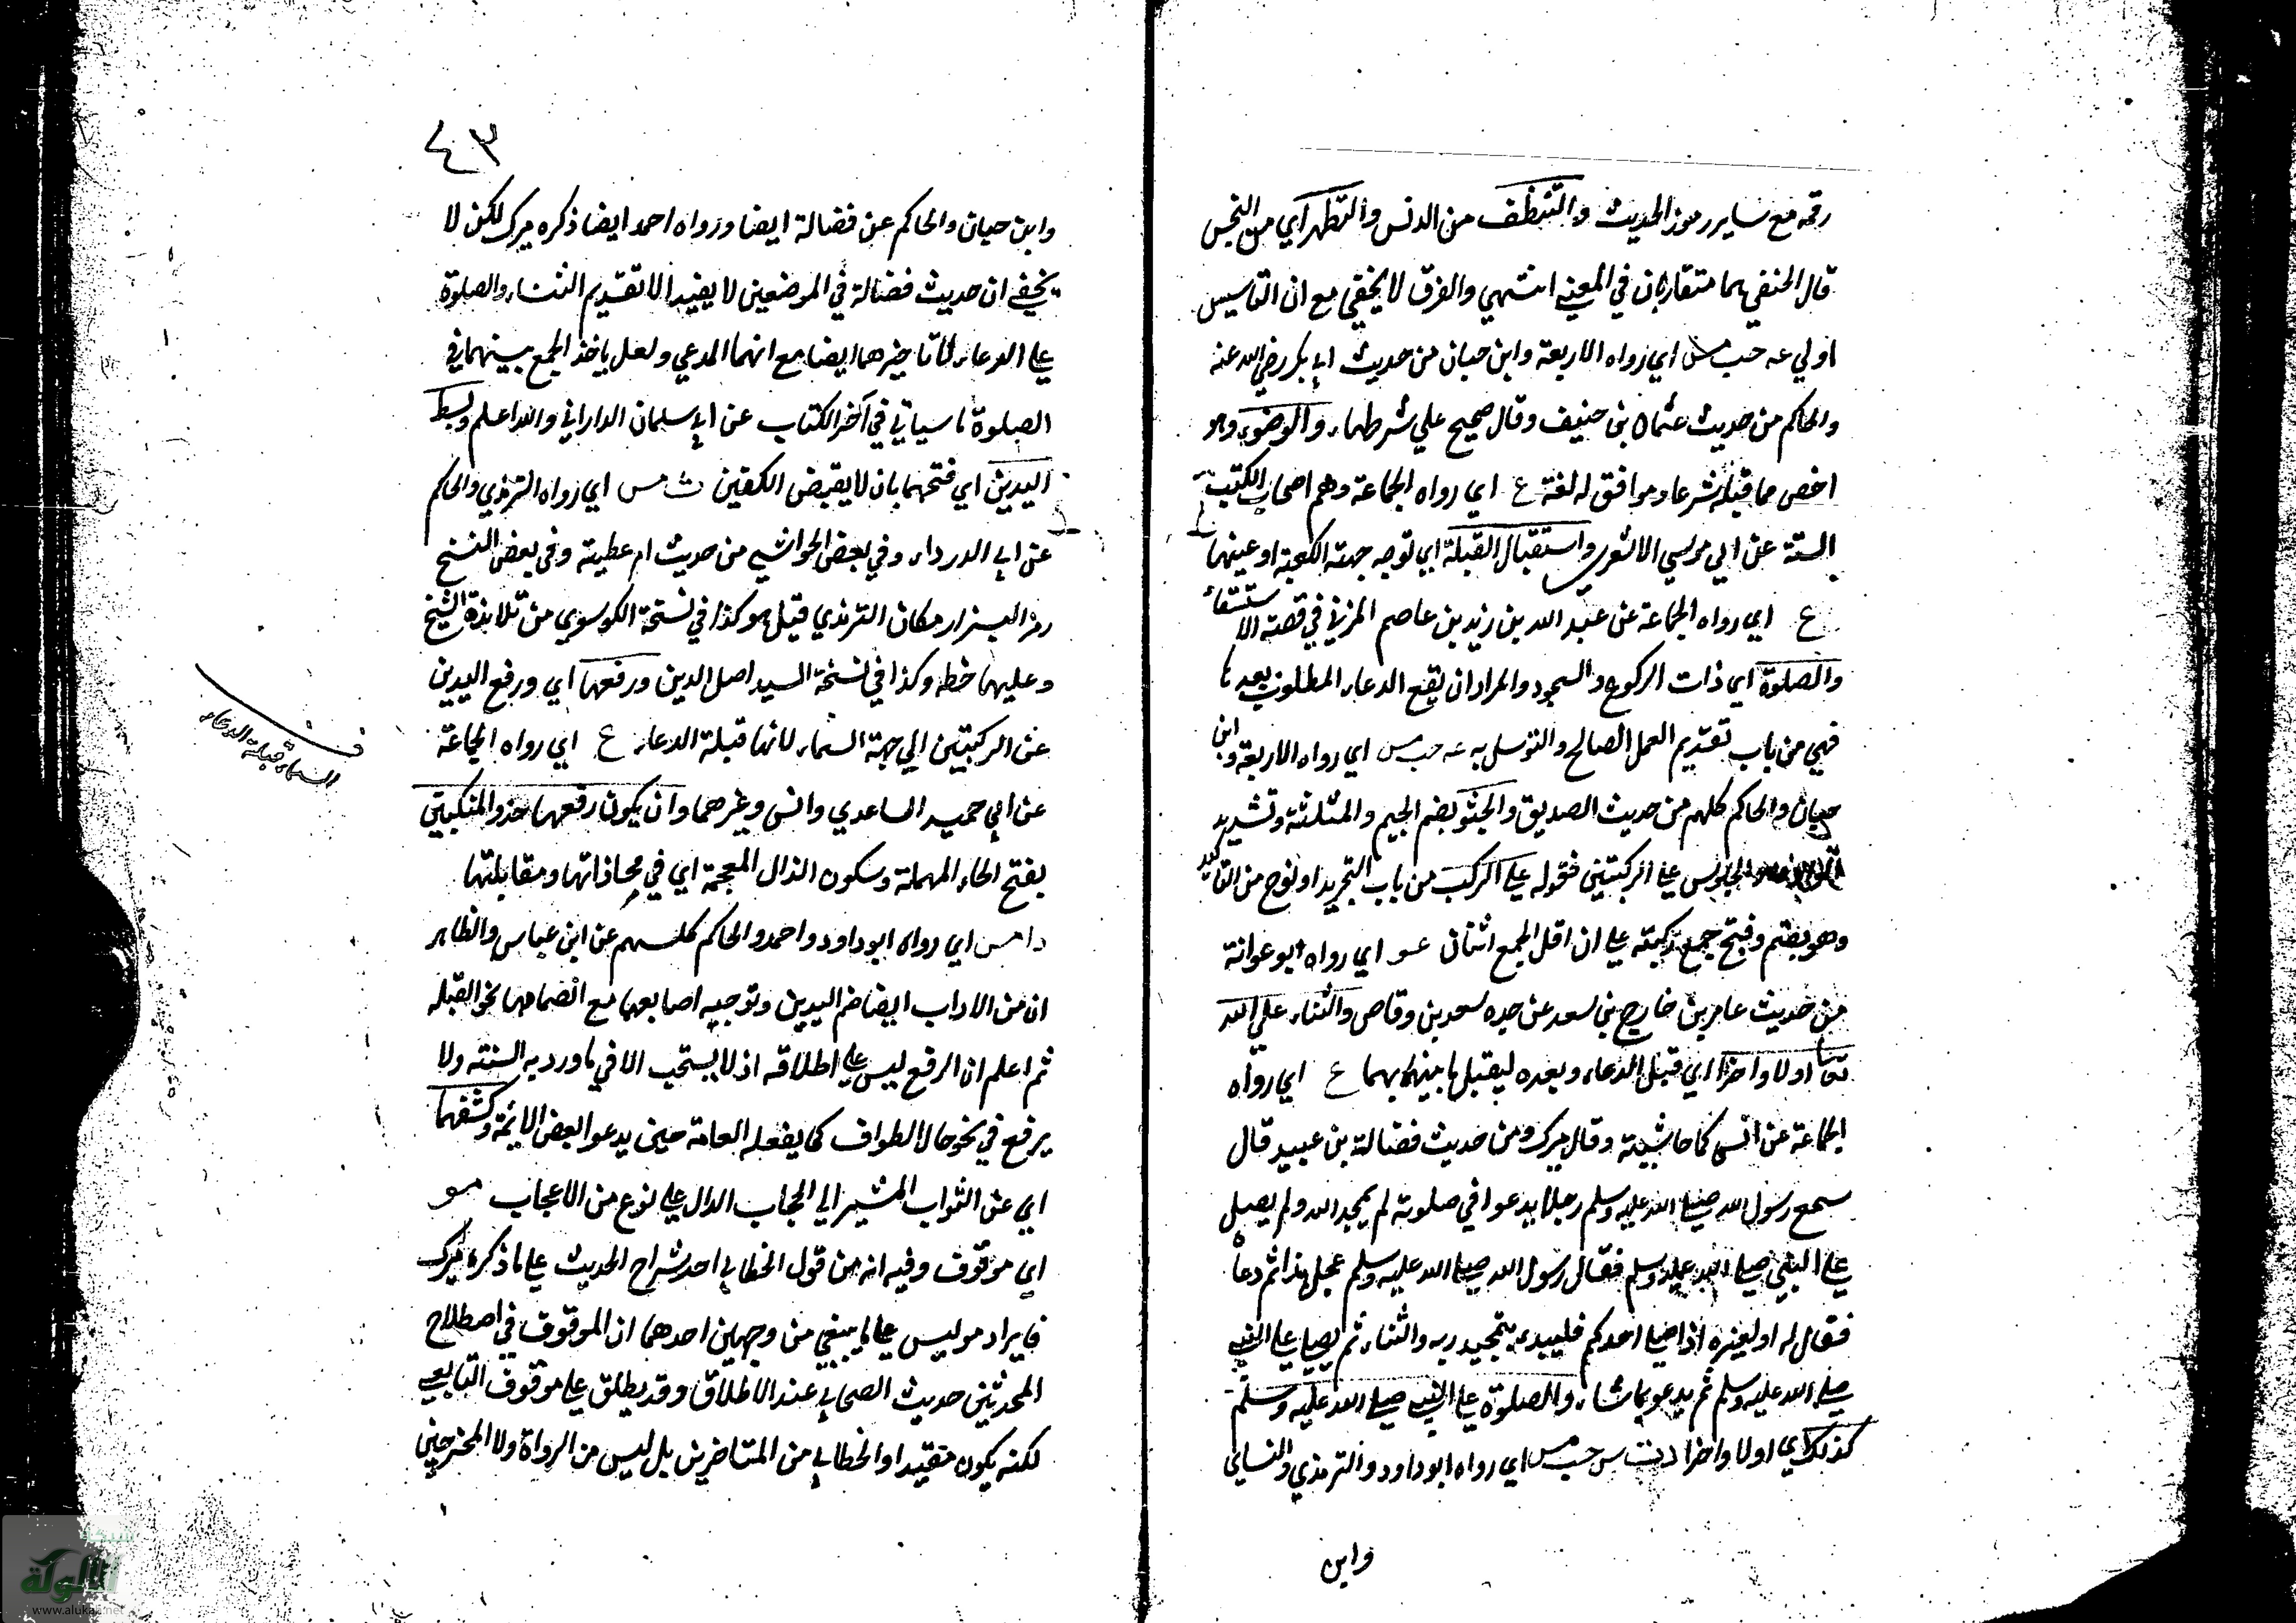 رقمه مع ساير رموز الحديث والتنظف من الدنس والتطهر اي من النجس
قال الحنفي هما متقاربان في المعني انتهي والفرق لا يخفي مع ان التاسيس
اولي عه حب مس اي رواه الاربعة وابن حبان من حديث ابي بكر رضي الله عنه
والحاكم من حديث عثمان بن حنيف وقال صحيح علي شرطهما والوضوء وهو
اخص مما قبله شرعا وموافق له لغة ع اي رواه الجماعة وهم اصحاب الكتب
الستة عن ابي موسي الاشعري واستقبال القبلة اي توجه جهة الكعبة او عينها
ع اي رواه الجماعة عن عبد الله بن زيد بن عاصم المزني في قصة الاستسقاء
والصلوة اي ذات الركوع والسجود والمراد ان يقع الدعاء المطلوب بعدها
فهي من باب تقديم العمل الصالح والتوسل به عه حب مس اي رواه الاربعة وابن
حبان والحاكم كلهم من حديث الصديق والجثو بضم الجيم والمثلثة وتشديد
الجلوس علي الركبتين فقوله علي الركب من باب التجريد او نوع من التاكيد
وهو بضم وفتح جمع ركبة علي ان اقل الجمع اثنان عو اي رواه ابو عوانة
من حديث عامر بن خارجة بن سعد عن جده سعد بن وقاص والثناء علي الله
تعا اولا واخرا اي قبل الدعاء وبعده ليقبل ما بينهما بهما ع اي رواه
الجماعة عن انس كما حاشيته وقال ميرك ومن حديث فضالة بن عبيد قال
سمع رسول الله صلي الله عليه وسلم رجلا يدعوا في صلوته لم يمجد الله ولم يصل
علي النبي صلي الله عليه وسلم فقال رسول الله صلي الله عليه وسلم عجل هذا ثم دعا
فقال له او لغيره اذا صلي احدكم فليبدء بتمجيد ربه والثناء ثم يصلي علي النبي
صلي الله عليه وسلم ثم يدعو بما شاء والصلوة علي النبي صلي الله عليه وسلم
كذلك اي اولا واخرا د ت س حب مس اي رواه ابو داود والترمذي والنساي
وابن
٤٣
وابن حبان والحاكم عن فضالة ايضا ورواه احمد ايضا ذكره ميرك لكن لا
يخفي ان حديث فضالة في الموضعين لا يفيد الا تقديم الثناء والصلوة
علي الدعاء لا تاخيرهما ايضا مع انهما المدعي ولعل ياخذ الجمع بينهما في
الصلوة ما سياتي في آخر الكتاب عن ابي سلمان الداراني والله اعلم وبسط
اليدين اي فتحهما بان لا يقبض الكفين ت مس اي رواه الترمذي والحاكم
عن ابي الدرداء وفي بعض الحواشي من حديث ام عطية وفي بعض النسخ
رمز البزار مكان الترمذي قيل هو كذا في نسخة الكوسوي من تلامذة الشيخ
وعليها خطه وكذا في نسخة السيد اصل الدين ورفعهما اي ورفع اليدين
عن الركبتين الي جهة السماء لانها قبلة الدعاء ع اي رواه الجماعة
السماء قبلة الدعاء
عن ابي حميد الساعدي وانس وغيرهما وان يكون رفعهما حذو المنكبين
بفتح الحاء المهملة وسكون الذال المعجمة اي في محاذاتها ومقابلتها
د ا مس اي رواه ابو داود واحمد والحاكم كلهم عن ابن عباس والظاهر
ان من الاداب ايضا ضم اليدين وتوجيه اصابعهما مع انضمامها نحو القبله
ثم اعلم ان الرفع ليس علي اطلاقه اذ لا يستحب الا في ما ورد به السنة ولا
يرفع في نحو حالا الطواف كما يفعله العامة حين يدعوا بعض الائمة وكشفهما
اي عن الثواب المشير الي الحجاب الدال علي نوع من الاعجاب مو
اي موقوف وفيه انه من قول الخطابي احد شراح الحديث علي ما ذكره ميرك
فايراد مو ليس علي ما ينبغي من وجهين احدهما ان الموقوف في اصطلاح
المحدثين حديث الصحابي عند الاطلاق وقد يطلق علي موقوف التابعي
لكنه يكون مقيدا والخطابي من المتاخرين بل ليس من الرواة ولا المخرجين
شبكة
الألوكة
www.alukah.net